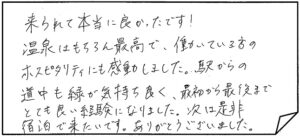 来られて本当に良かったです!
温泉はもちろん最高で、働いている方の
ホスピタリティにも感動しました。駅からの
道中も緑が気持ち良く、最初から最後まで
とても良い経験になりました。次は是非
宿泊で来たいです。ありがとうございました。